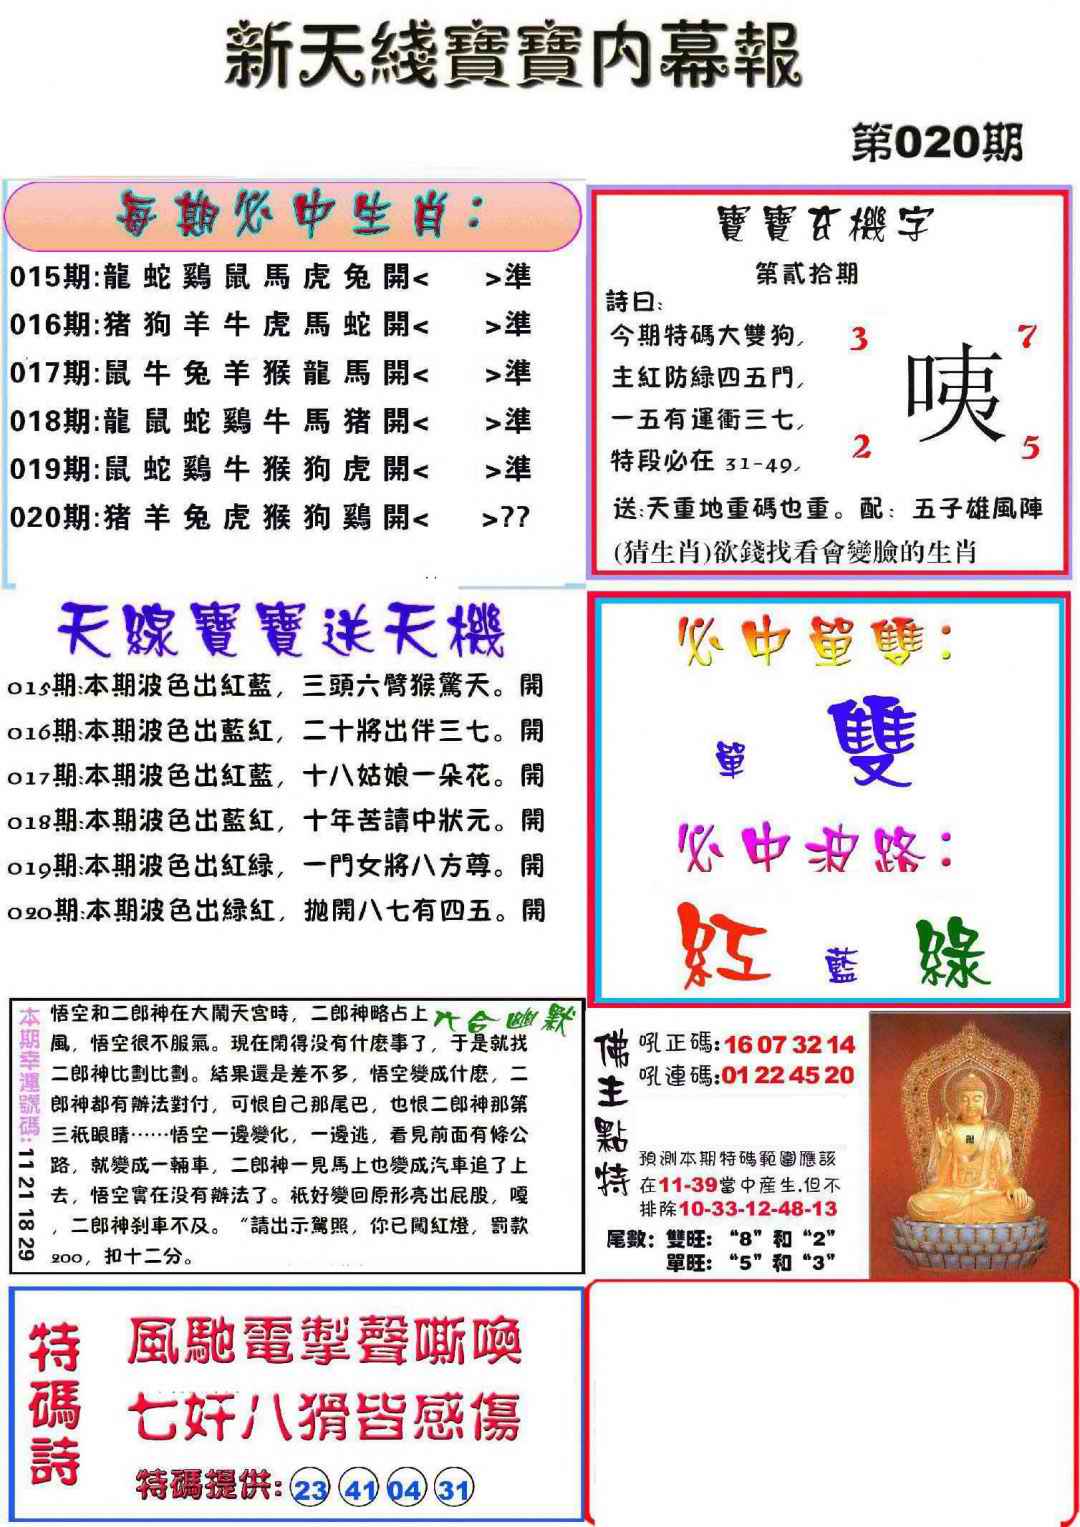 新天綫寶寶内幕報
第020期
每期必中生肖：
015期:龍蛇鷄鼠馬虎兔開< >準
016期:猪狗羊牛虎馬蛇開< >準
017期:鼠牛兔羊猴龍馬開< >準
018期:龍鼠蛇鷄牛馬猪開< >準
019期:鼠蛇鷄牛猴狗虎開< >準
020期:猪羊兔虎猴狗鷄開< >??
寶寶玄機字
第貳拾期
詩曰:
今期特碼大雙狗,
主紅防綠四五門,
一五有運衝三七,
特段必在 31-49,
3 7
咦
2 5
送:天重地重碼也重。配：五子雄風陣
(猜生肖)欲錢找看會變臉的生肖
天線寶寶送天機
015期:本期波色出紅藍，三頭六臂猴驚天。開
016期:本期波色出藍紅，二十將出伴三七。開
017期:本期波色出紅藍，十八姑娘一朵花。開
018期:本期波色出藍紅，十年苦讀中狀元。開
019期:本期波色出紅緑，一門女將八方尊。開
020期:本期波色出緑紅，抛開八七有四五。開
必中單雙：
單 雙
必中波路：
紅 藍 綠
本期幸運號碼:11 21 18 29
六合幽默
悟空和二郎神在大鬧天宫時，二郎神略占上
風，悟空很不服氣。現在閑得没有什麽事了，于是就找
二郎神比劃比劃。結果還是差不多，悟空變成什麽，二
郎神都有辦法對付，可恨自己那尾巴，也恨二郎神那第
三衹眼睛……悟空一邊變化，一邊逃，看見前面有條公
路，就變成一輛車，二郎神一見馬上也變成汽車追了上
去，悟空實在没有辦法了。衹好變回原形亮出屁股，嘎
，二郎神刹車不及。“請出示駕照，你已闖紅燈，罰款
200，扣十二分。
佛主點特
吼正碼:16 07 32 14
吼連碼:01 22 45 20
預測本期特碼範圍應該
在11-39當中産生.但不
排除10-33-12-48-13
尾數：雙旺：“8”和“2”
單旺：“5”和“3”
特碼詩
風馳電掣聲嘶喚
七奸八猾皆感傷
特碼提供: 23 41 04 31